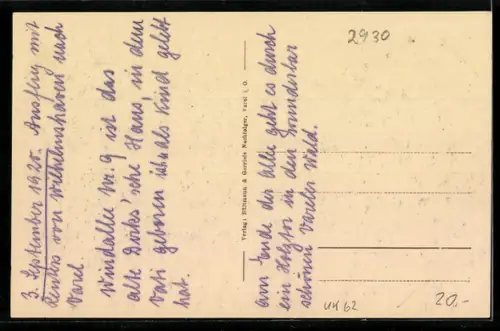 3. September 1925. Ausflug mit
von Wilhelmshaven nach
Varel.
Windallee Nr. 9 ist das
alte 'sche Haus, in dem
Vati geboren ist u. als Kind gelebt
hat.
Verlag: Bültmann & Gerriets Nachfolger, Varel i. O.
am Ende der Allee geht es durch
ein in den wunderbar
schönen Vareler Wald.
2930
UH 62
20,-